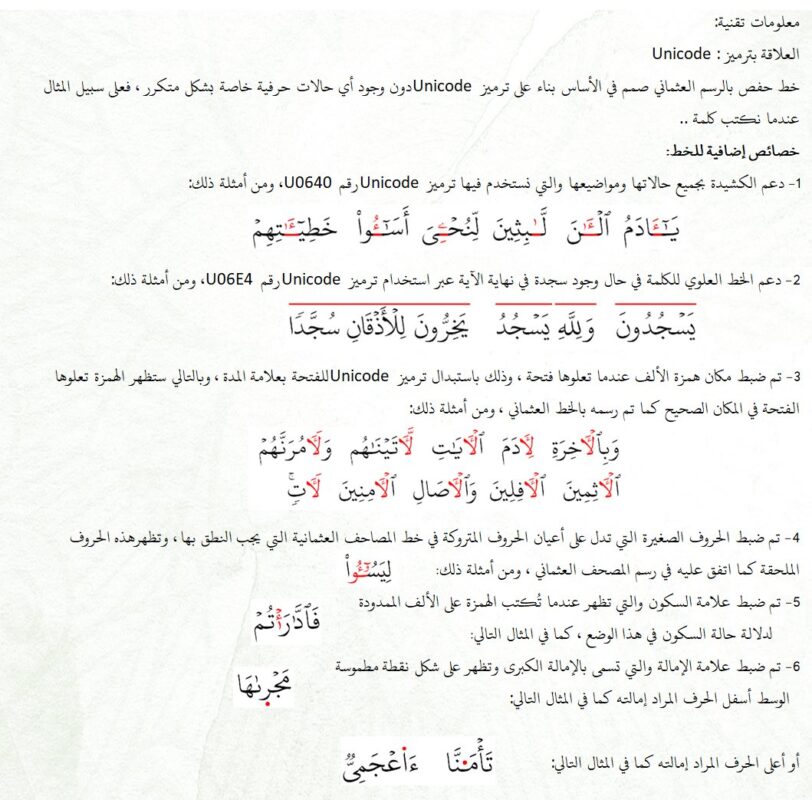 معلومات تقنية:
العلاقة بترميز : Unicode
خط حفص بالرسم العثماني صمم في الأساس بناء على ترميز Unicodeدون وجود أي حالات حرفية خاصة بشكل متكرر ، فعلى سبيل المثال
عندما نكتب كلمة ..
خصائص إضافية للخط:
1- دعم الكشيدة بجميع حالاتها ومواضيعها والتي نستخدم فيها ترميز Unicodeرقم U0640، ومن أمثلة ذلك:
يَـٰٓـَٔادَمُ ٱلۡـَٔـٰنَ لَّـٰبِثِينَ لِّنُحۡـِۧيَ أَسَـٰٓـُٔواْ خَطِيٓـَٔـٰتِهِمۡ
2- دعم الخط العلوي للكلمة في حال وجود سجدة في نهاية الآية عبر استخدام ترميز Unicodeرقم U06E4، ومن أمثلة ذلك:
يَسۡجُدُونَ وَلِلَّهِ يَسۡجُدُ يَخِرُّونَ لِلۡأَذۡقَانِ سُجَّدٗا
3- تم ضبط مكان همزة الألف عندما تعلوها فتحة ، وذلك باستبدال ترميز Unicodeللفتحة بعلامة المدة ، وبالتالي ستظهر الهمزة تعلوها
الفتحة في المكان الصحيح كما تم رسمه بالخط العثماني ، ومن أمثلة ذلك:
وَبِٱلۡأٓخِرَةِ لِأٓدَمَ ٱلۡأٓيَٰتِ لَّأٓتَيۡنَٰهُم وَلَأٓمُرَنَّهُمۡ
ٱلۡأٓثِمِينَ ٱلۡأٓفِلِينَ وَٱلۡأٓصَالِ ٱلۡأٓمِنِينَ لَأٓتٖۚ
4- تم ضبط الحروف الصغيرة التي تدل على أعيان الحروف المتروكة في خط المصاحف العثمانية التي يجب النطق بها ، وتظهرهذه الحروف
الملحقة كما اتفق عليه في رسم المصحف العثماني ، ومن أمثلة ذلك: لِيَسُـُٔواْ
5- تم ضبط علامة السكون والتي تظهر عندما تُكتب الهمزة على الألف الممدودة
لدلالة حالة السكون في هذا الوضع ، كما في المثال التالي: فَٱدَّٰرَٰٔتُمۡ
6- تم ضبط علامة الإمالة والتي تسمى بالإمالة الكبرى وتظهر على شكل نقطة مطموسة
الوسط أسفل الحرف المراد إمالته كما في المثال التالي: مَجۡر۪ىٰهَا
أو أعلى الحرف المراد إمالته كما في المثال التالي: تَأۡمَ۬نَّا ءَا۬عۡجَمِيّٞ